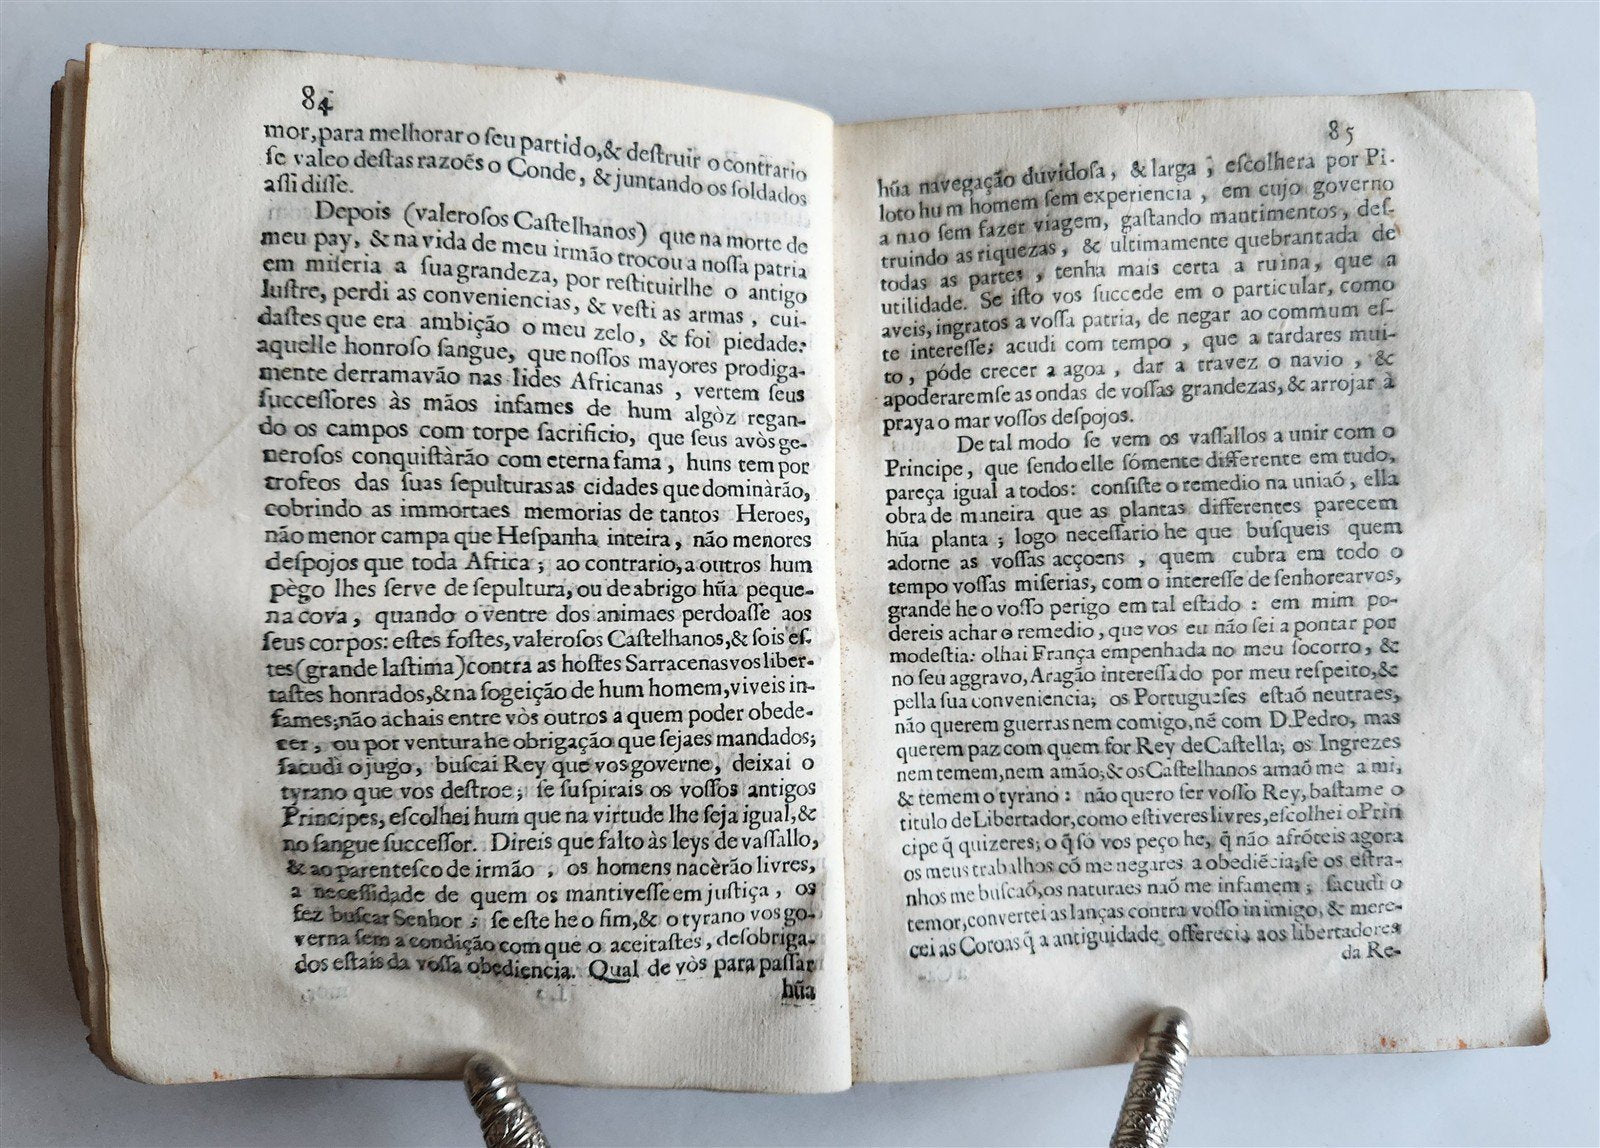 84
mor, para melhorar o ſeu partido, & deſtruir o contrario
ſe valeo deſtas razoẽs o Conde, & juntando os ſoldados
aſſi diſſe.
Depois (valeroſos Caſtelhanos) que na morte de
meu pay, & na vida de meu irmão trocou a noſſa patria
em miſeria a ſua grandeza, por reſtituirlhe o antigo
luſtre, perdi as conveniencias, & veſti as armas, cui-
daſtes que era ambição o meu zelo, & foi piedade:
aquelle honroſo ſangue, que noſſos mayores prodiga-
mente derramavão nas lides Africanas, vertem ſeus
ſucceſſores às mãos infames de hum algòz regan-
do os campos com torpe ſacrificio, que ſeus avòs ge-
neroſos conquiſtàrão com eterna fama, huns tem por
trofeos das ſuas ſepulturas as cidades que dominàrão,
cobrindo as immortaes memorias de tantos Heroes,
não menor campa que Heſpanha inteira, não menores
deſpojos que toda Africa; ao contrario, a outros hum
pègo lhes ſerve de ſepultura, ou de abrigo hũa peque-
na cova, quando o ventre dos animaes perdoaſſe aos
ſeus corpos: eſtes foſtes, valeroſos Caſtelhanos, & ſois eſ-
tes (grande laſtima) contra as hoſtes Sarracenas vos liber-
taſtes honrados, & na ſogeição de hum homem, viveis in-
fames; não achais entre vòs outros a quem poder obede-
cer, ou por ventura he obrigação que ſejaes mandados;
ſacudi o jugo, buſcai Rey que vos governe, deixai o
tyrano que vos deſtroe; ſe ſuſpirais os voſſos antigos
Principes, eſcolhei hum que na virtude lhe ſeja igual, &
no ſangue ſucceſſor. Direis que falto às leys de vaſſallo,
& ao parenteſco de irmão, os homens nacèrão livres,
a neceſſidade de quem os mantiveſſe em juſtiça, os
fez buſcar Senhor; ſe eſte he o fim, & o tyrano vos go-
verna ſem a condição com que o aceitaſtes, deſobriga-
dos eſtais da voſſa obediencia. Qual de vòs para paſſar
hũa
85
hũa navegação duvidoſa, & larga, eſcolhera por Pi-
loto hum homem ſem experiencia, em cujo governo
a nao ſem fazer viagem, gaſtando mantimentos, deſ-
truindo as riquezas, & ultimamente quebrantada de
todas as partes, tenha mais certa a ruina, que a
utilidade. Se iſto vos ſuccede em o particular, como
aveis, ingratos a voſſa patria, de negar ao commum eſ-
te intereſſe; acudi com tempo, que a tardares mui-
to, póde crecer a agoa, dar a travez o navio, &
apoderaremſe as ondas de voſſas grandezas, & arrojar à
praya o mar voſſos deſpojos.
De tal modo ſe vem os vaſſallos a unir com o
Principe, que ſendo elle ſómente differente em tudo,
pareça igual a todos: conſiſte o remedio na uniaõ, ella
obra de maneira que as plantas differentes parecem
hũa planta; logo neceſſario he que buſqueis quem
adorne as voſſas acçoens, quem cubra em todo o
tempo voſſas miſerias, com o intereſſe de ſenhorearvos,
grande he o voſſo perigo em tal eſtado: em mim po-
dereis achar o remedio, que vos eu não ſei apontar por
modeſtia: olhai França empenhada no meu ſocorro, &
no ſeu aggravo, Aragão intereſſado por meu reſpeito, &
pella ſua conveniencia; os Portugueſes eſtaõ neutraes,
não querem guerras nem comigo, nẽ com D. Pedro, mas
querem paz com quem for Rey de Caſtella; os Ingrezes
nem temem, nem amão; & os Caſtelhanos amaõ me a mi,
& temem o tyrano: não quero ſer voſſo Rey, baſtame o
titulo de Libertador, como eſtiveres livres, eſcolhei o Prin
cipe q̃ quizeres; o q̃ ſó vos peço he, q̃ não afrõteis agora
os meus trabalhos cõ me negares a obediẽcia; ſe os eſtra-
nhos me buſcaõ, os naturaes naõ me infamem; ſacudi o
temor, convertei as lanças contra voſſo inimigo, & mere-
cei as Coroas q̃ a antiguidade offerecia aos libertadores
da Re-